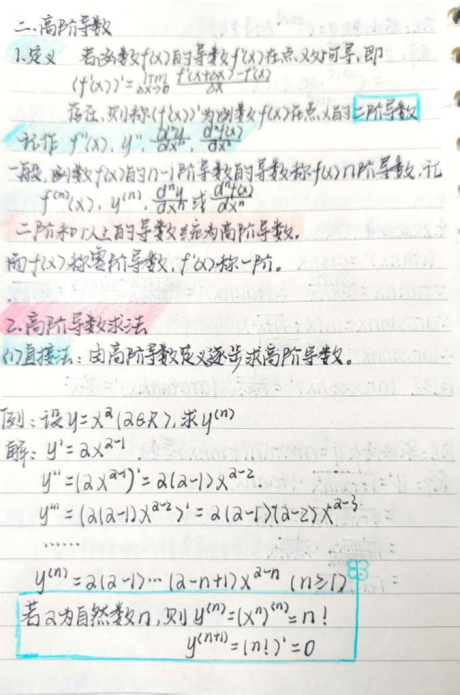 二.高阶导数
1.定义 若函数f(x)的导数f'(x)在点x处可导,即
(f'(x))'=lim Δx→0 f'(x+Δx)-f'(x)/Δx
存在,则称(f'(x))'为函数f(x)在点x的二阶导数
记作 f''(x), y'', d²y/dx², d²f(x)/dx²
一般,函数f(x)的n-1阶导数的导数称f(x)n阶导数,记
f⁽ⁿ⁾(x), y⁽ⁿ⁾, dⁿy/dxⁿ或dⁿf(x)/dxⁿ
二阶和以上的导数统为高阶导数。
而f(x)称零阶导数,f'(x)称一阶。
2.高阶导数求法
(1)直接法:由高阶导数定义逐步求高阶导数。
例:设y=x^α(α∈R),求y⁽ⁿ⁾
解: y'=αx^(α-1)
y''=(αx^(α-1))'=α(α-1)x^(α-2)
y'''=(α(α-1)x^(α-2))'=α(α-1)(α-2)x^(α-3)
……
y⁽ⁿ⁾=α(α-1)…(α-n+1)x^(α-n) (n≥1)
若α为自然数n,则y⁽ⁿ⁾=(xⁿ)⁽ⁿ⁾=n!
y⁽ⁿ⁺¹⁾=(n!)'=0